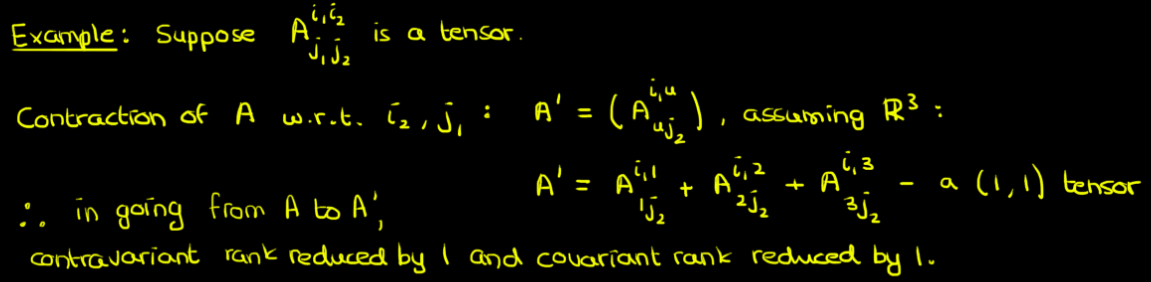 Example: Suppose A^{i₁i₂}_{j₁j₂} is a tensor.
Contraction of A w.r.t. i₂, j₁ : A' = (A^{i₁u}_{uj₂}), assuming ℝ³ :
A' = A^{i₁1}_{1j₂} + A^{i₁2}_{2j₂} + A^{i₁3}_{3j₂} - a (1,1) tensor
∴ in going from A to A',
contravariant rank reduced by 1 and covariant rank reduced by 1.